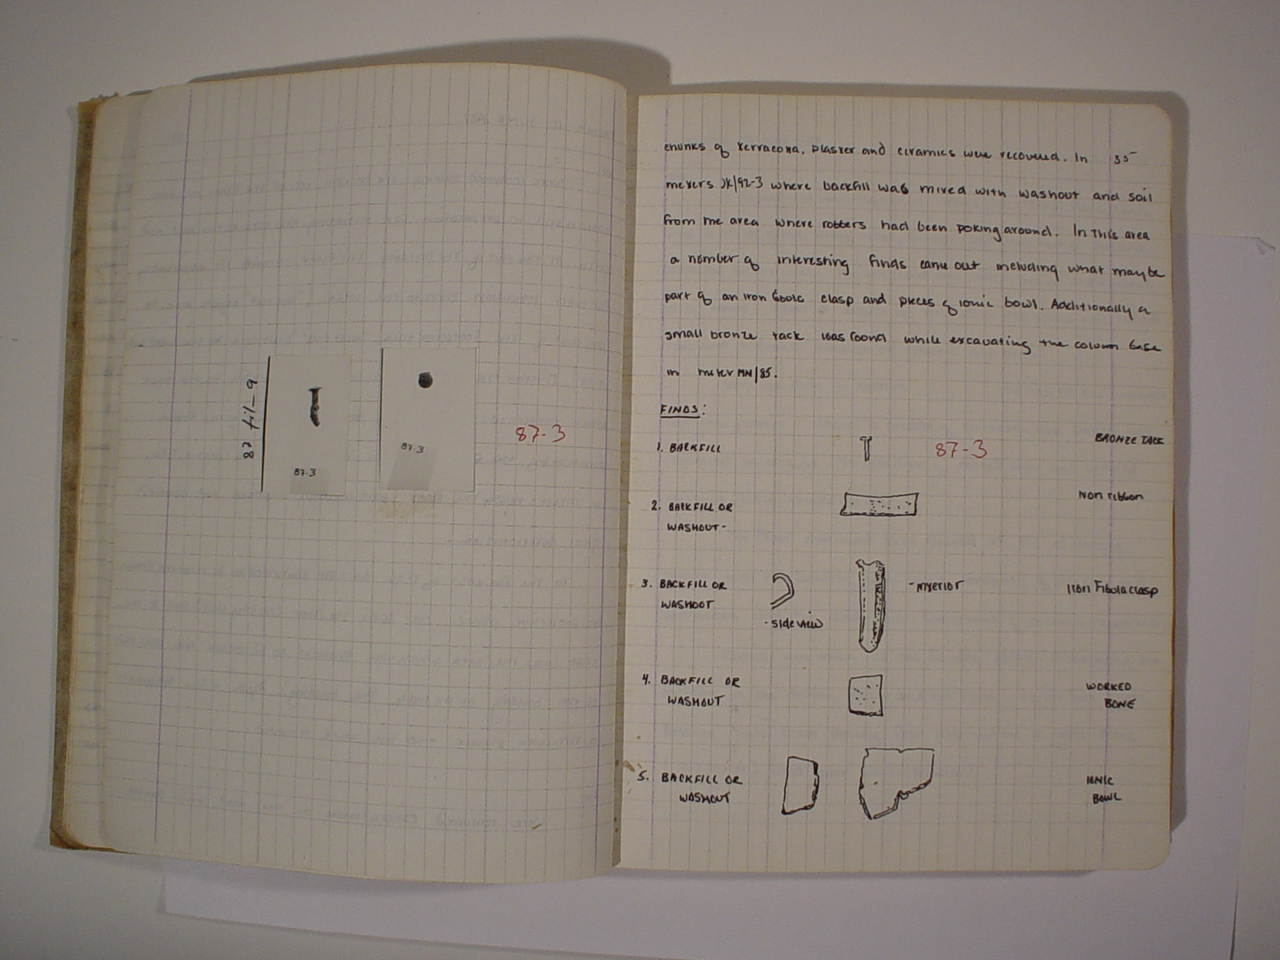 87 fil-9
87.3
87.3
87-3
chunks of terracotta, plaster and ceramics were recovered. In 35
meters JK/92-3 where backfill was mixed with washout and soil
from the area where robbers had been poking around. In this area
a number of interesting finds came out including what maybe
part of an iron fibula clasp and pieces of ionic bowl. Additionally a
small bronze tack was found while excavating the column base
in meter MN/85.
FINDS:
1. BACKFILL 87-3 BRONZE TACK
2. BACKFILL OR ribbon
WASHOUT-
3. BACKFILL OR - interior Iron Fibula clasp
WASHOUT
- side view
4. BACKFILL OR WORKED
WASHOUT BONE
5. BACKFILL OR IONIC
WASHOUT BOWL